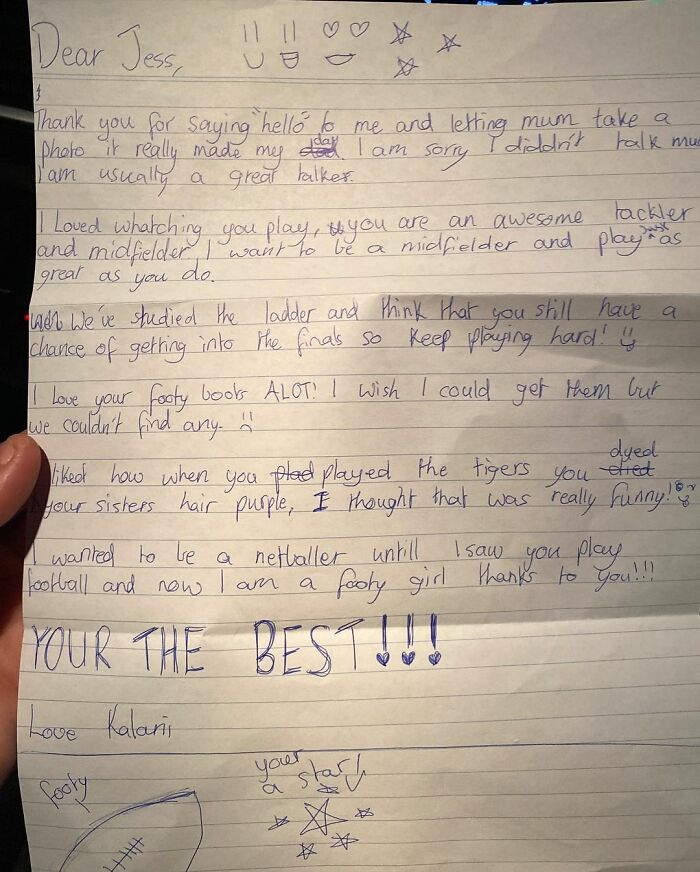 Dear Jess,
Thank you for saying "hello" to me and letting mum take a
photo it really made my day. I am sorry I diddn't talk
I'am usually a great talker.
I Loved whatching you play, you are an awesome tackler
and midfielder, I want to be a midfielder and play just as
great as you do.
We've studied the ladder and think that you still have a
chance of getting into the finals so keep playing hard!
I Love your footy boots ALOT! I wish I could get them but
we couldn't find any.
liked how when you played the tigers you dyed
your sisters hair purple, I thought that was really funny!
I wanted to be a netballer untill I saw you play
football and now I am a footy girl thanks to you!!!
YOUR THE BEST!!!
Love Kalani
footy
your
a star!